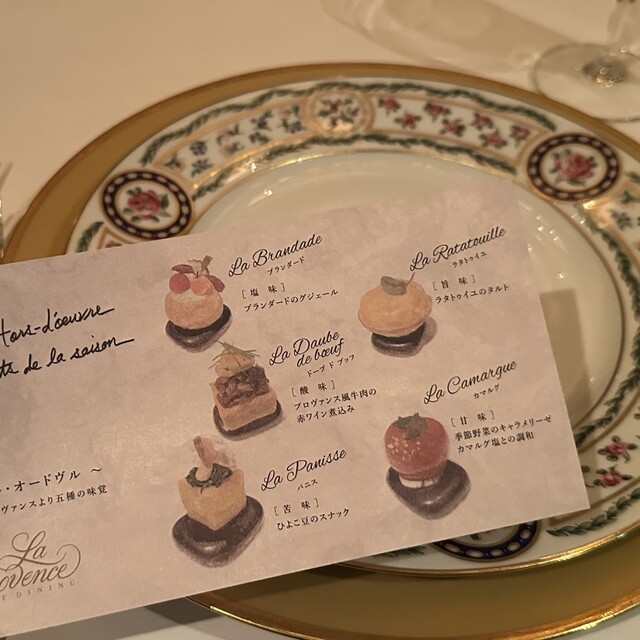 Hors-d'oeuvre
de la saison
La Brandade
ブランダード
[ 塩 味 ]
ブランダードのグジェール
La Ratatouille
ラタトゥイユ
[ 旨 味 ]
ラタトゥイユのタルト
La Daube
de bœuf
ドーブ ド ブッフ
[ 酸 味 ]
プロヴァンス風牛肉の
赤ワイン煮込み
La Camargue
カマルグ
[ 甘 味 ]
季節野菜のキャラメリーゼ
カマルグ塩との調和
La Panisse
パニス
[ 苦 味 ]
ひよこ豆のスナック
・オードヴル ～
ヴァンスより五種の味覚
La
ovence
DINING